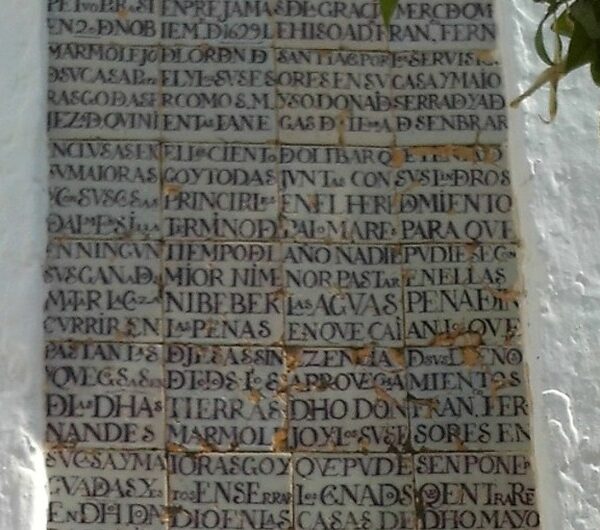 EN PREJAMAS DL GRACI MERC DOM
EN 2o D NOB IEM. D 1629 L E HISO A D FRAN. FERN
MARMOLEJO DL ORDN. D SANTIAGO POR LOS SERVISI
D SV CASA D EL Y LOS SVSES ORES EN SV CASA Y MAIO
RASGO DASE R COMO S. M. Y SO DONA D SERRAD Y AD
D OVINI ENTAS FANE GAS D D SENBRAR
INCLVSAS EN EL LOS CIENTO D OLIBAR Q
SV MAIORAS GO Y TODAS IVNTAS CON SVS LINDROS
Y CON SVS CASAS PRINCIPALES EN EL HERE DMIENTO
TERMINO D PALOMARES PARA QVE
EN NINGVN TIEMPO DL AÑO NADIE PVDIESE CON
SVS GANAD MIOR NIM NOR PASTAR EN ELLAS
MATAR LA CAZA NI BEBER LAS AGVAS PENA D IN
CVRRIR EN LAS PENAS EN QVE CAIAN LOS QVE
PASTAN LAS D JESAS SIN LIZENCIA D SVS DVENO
Y QVE GASEN D TODOS LOS APROVECHAMIENTOS
D LAS DHAS TIERRAS DHO DON FRAN. FER
NANDES MARMOLEJO Y LOS SVSE SORES EN
SV CASA Y MA IORASGO Y QVE PVDE SEN PONER
GVADAS Y ENSERRAR LOS GNADOS Q ENTRARE
EN DHO DON DIO EN LAS CASAS DE DHO MAYO